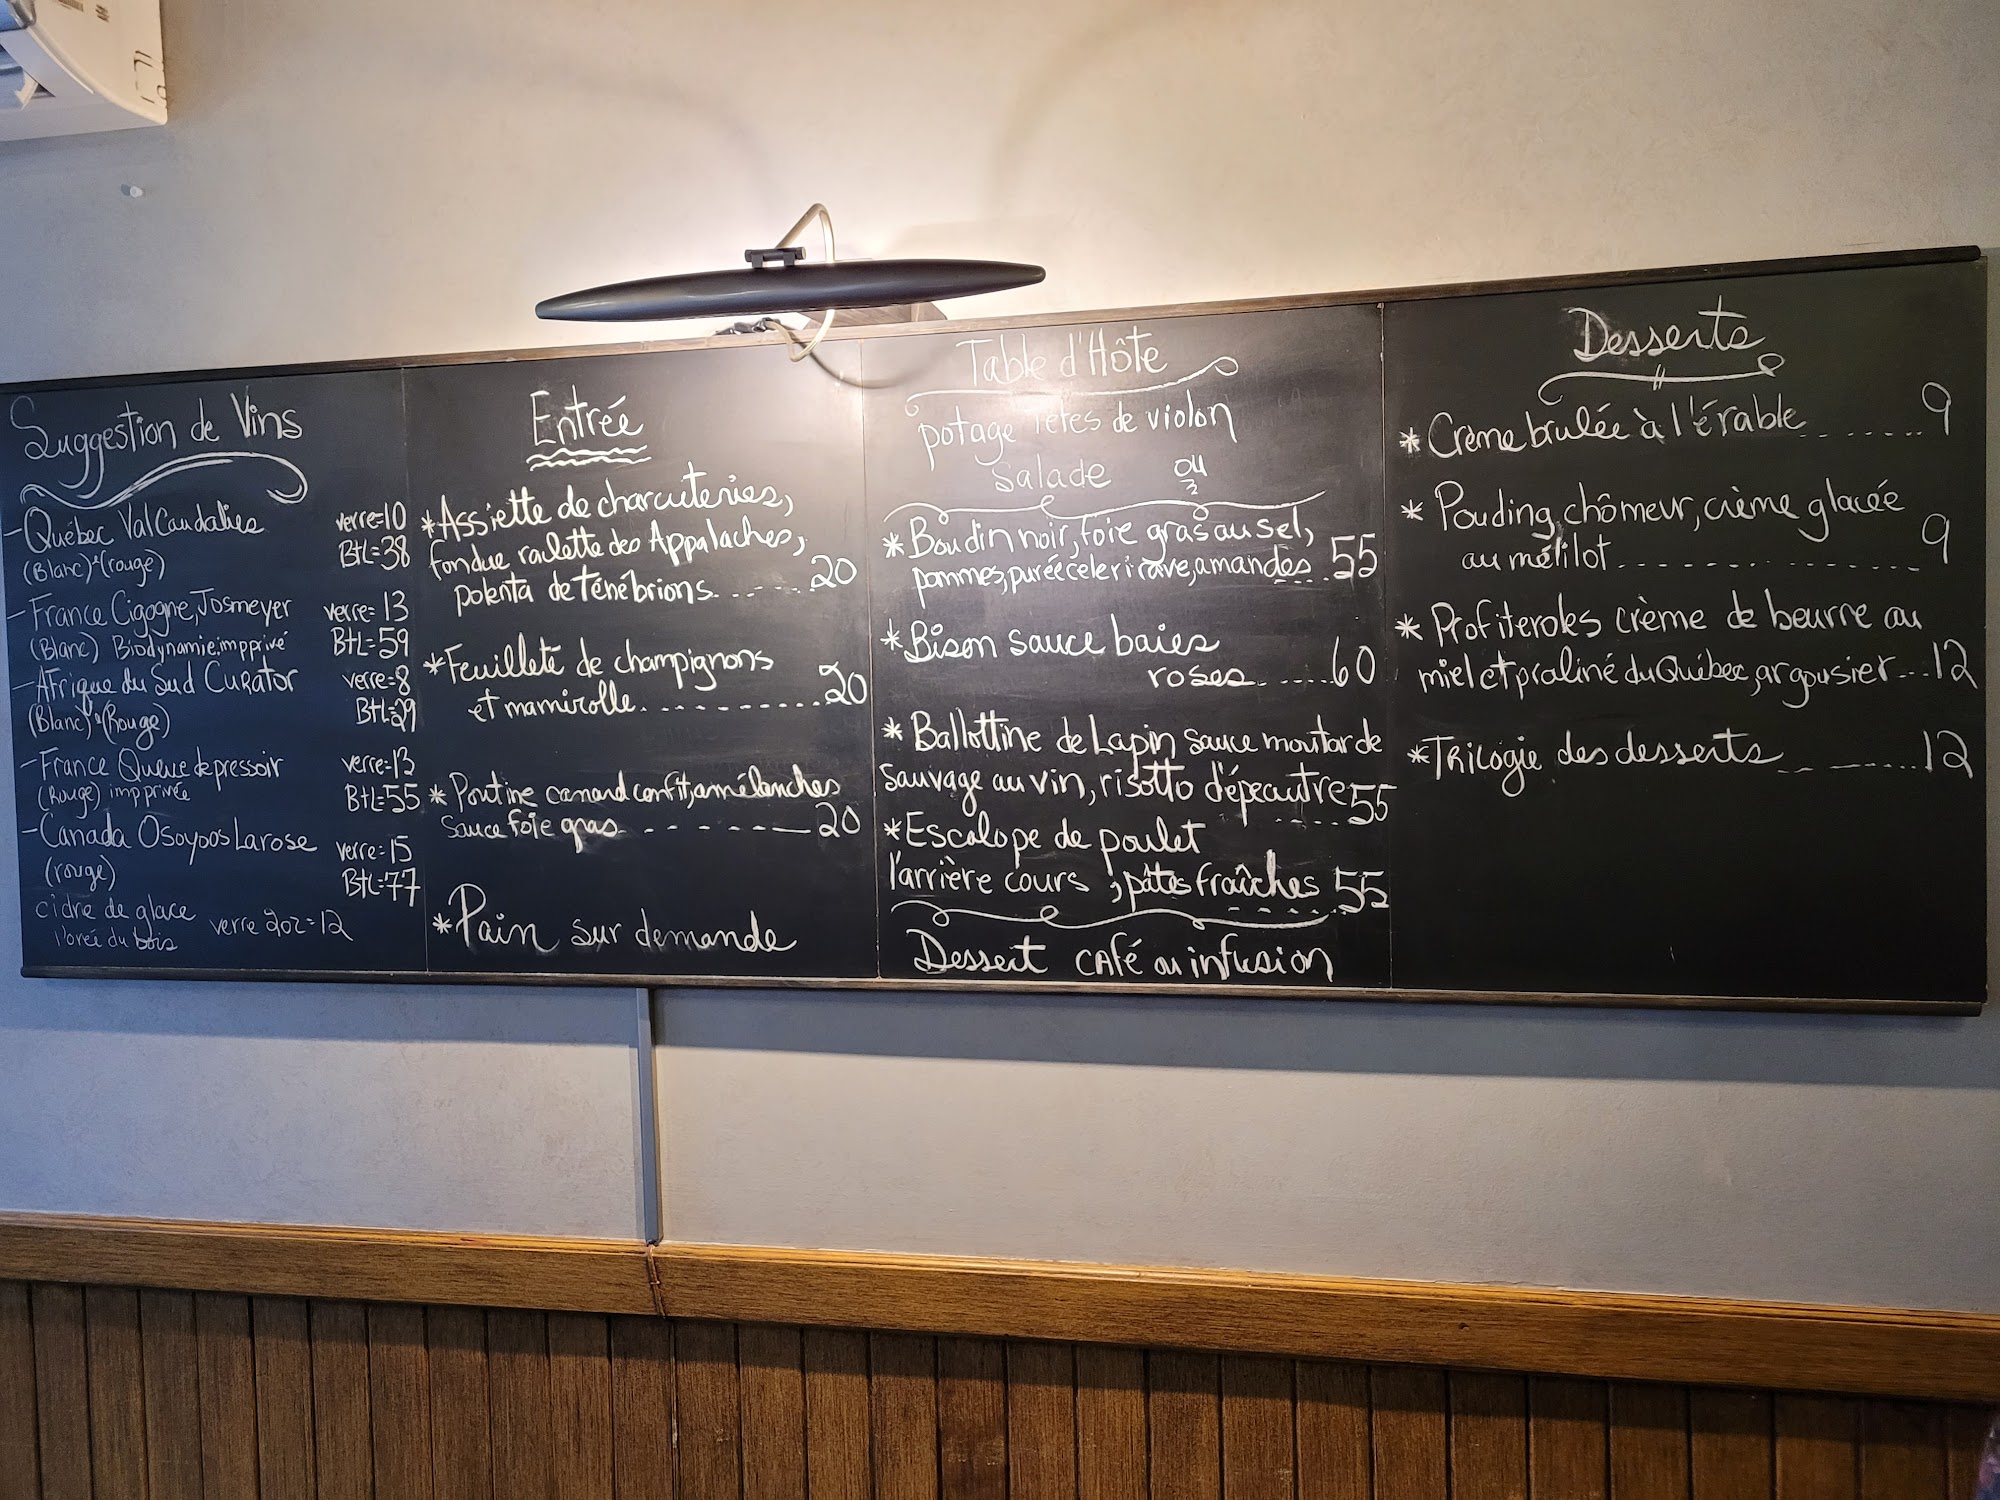 Suggestion de Vins
- Québec Val Caudalies verre=10
(Blanc)*(rouge) Btl=38
- France Cigogne, Josmeyer verre=13
(Blanc) Biodynamie, imp privé Btl=59
- Afrique du Sud Curator verre=8
(Blanc)*(Rouge) Btl=29
- France Queue de pressoir verre=13
(Rouge) imp privée Btl=55
- Canada Osoyoos Larose verre=15
(rouge) Btl=77
cidre de glace
l'orée du bois verre 2oz=12
Entrée
* Assiette de charcuteries,
fondue raclette des Appalaches,
polenta de ténébrions......20
* Feuilleté de champignons
et mamirolle..........20
* Poutine canard confit, amélanches
sauce foie gras........20
* Pain sur demande
Table d'Hôte
potage Têtes de violon
ou
Salade
* Boudin noir, foie gras au sel,
pommes, purée céleri rave, amandes..55
* Bison sauce baies
roses......60
* Ballottine de Lapin sauce moutarde
Sauvage au vin, risotto d'épeautre 55
* Escalope de poulet
l'arrière cours, pâtes fraîches 55
Dessert café ou infusion
Desserts
* Crème brulée à l'érable.......9
* Pouding chômeur, crème glacée
au mélilot..............9
* Profiteroles crème de beurre au
miel et praliné du Québec, argousier...12
* Trilogie des desserts........12